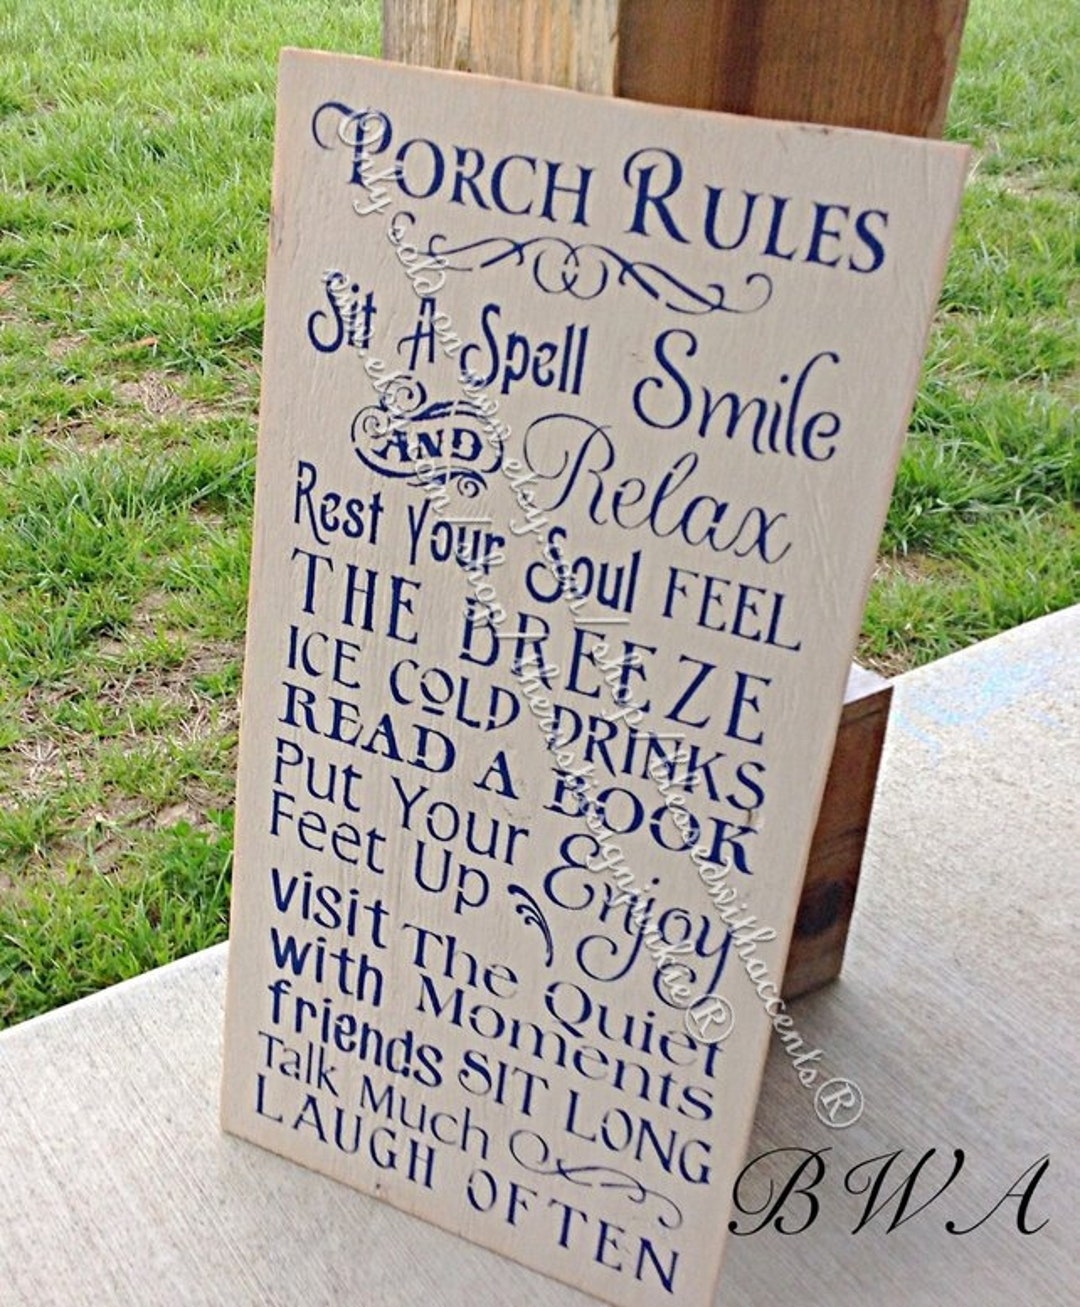 PORCH RULES
Sit A Spell Smile
AND Relax
Rest Your Soul FEEL
THE BREEZE
ICE COLD DRINKS
READ A BOOK
Put Your Enjoy
Feet Up
visit The Quiet
with Moments
friends SIT LONG
Talk Much
LAUGH OFTEN
Only sold on www.etsy.com/shop/blessedwithaccents®
www.etsy.com/shop/thevoskisignjunkie®
BWA